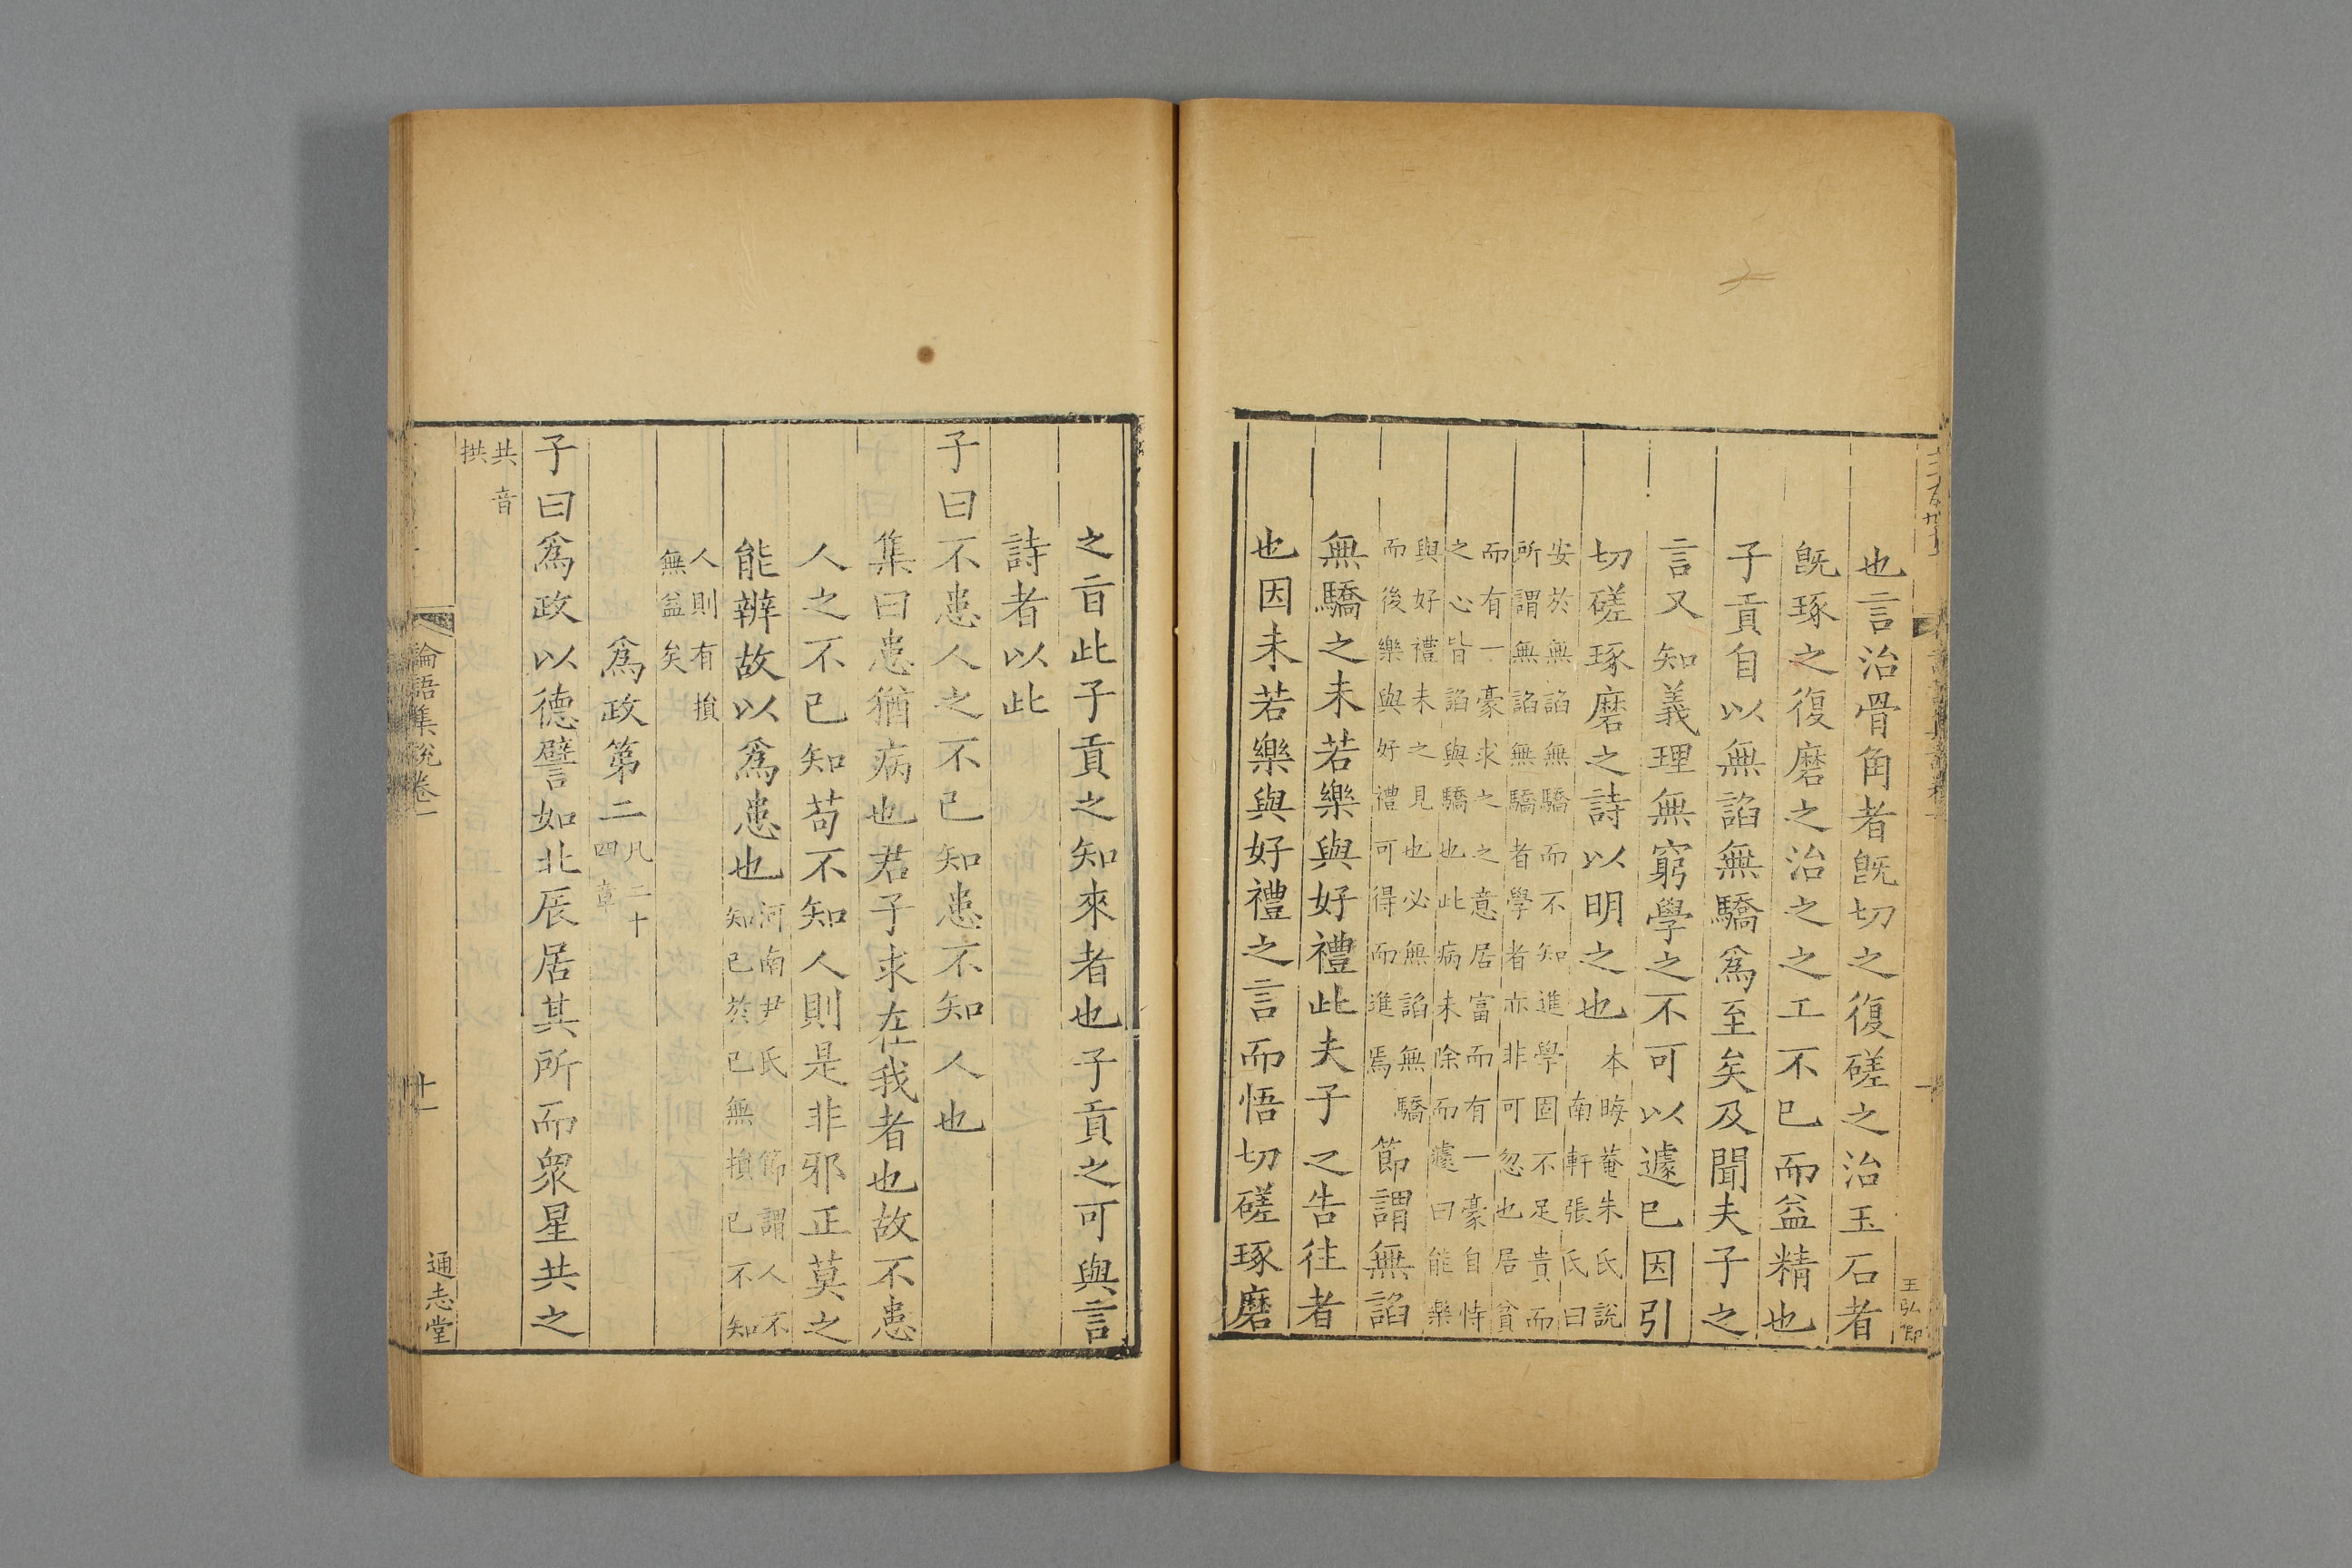 也言治骨角者旣切之復磋之治玉石者
旣琢之復磨之治之之工不已而益精也
子貢自以無諂無驕爲至矣及聞夫子之
言又知義理無窮學之不可以遽已因引
切磋琢磨之詩以明之也本晦菴朱氏說
南軒張氏曰
安於無諂無驕而不知進學固不足貴而
所謂無諂無驕者學者亦非可忽也居貧
而有一豪求之之意居富而有一豪自恃
之心皆諂與驕也此病未除而遽曰能樂
與好禮未之見也必無諂無驕
而後樂與好禮可得而進焉
節謂無諂
無驕之未若樂與好禮此夫子之告往者
也因未若樂與好禮之言而悟切磋琢磨
王弘
之㫖此子貢之知來者也子貢之可與言
詩者以此
子曰不患人之不已知患不知人也
集曰患猶病也君子求在我者也故不患
人之不已知苟不知人則是非邪正莫之
能辨故以爲患也河南尹氏節謂人不
知已於已無損已不知
人則有損
無益矣
爲政第二凡二十
四章
子曰爲政以德譬如北辰居其所而衆星共之
共音
拱
論語集說卷一
十一
通志堂